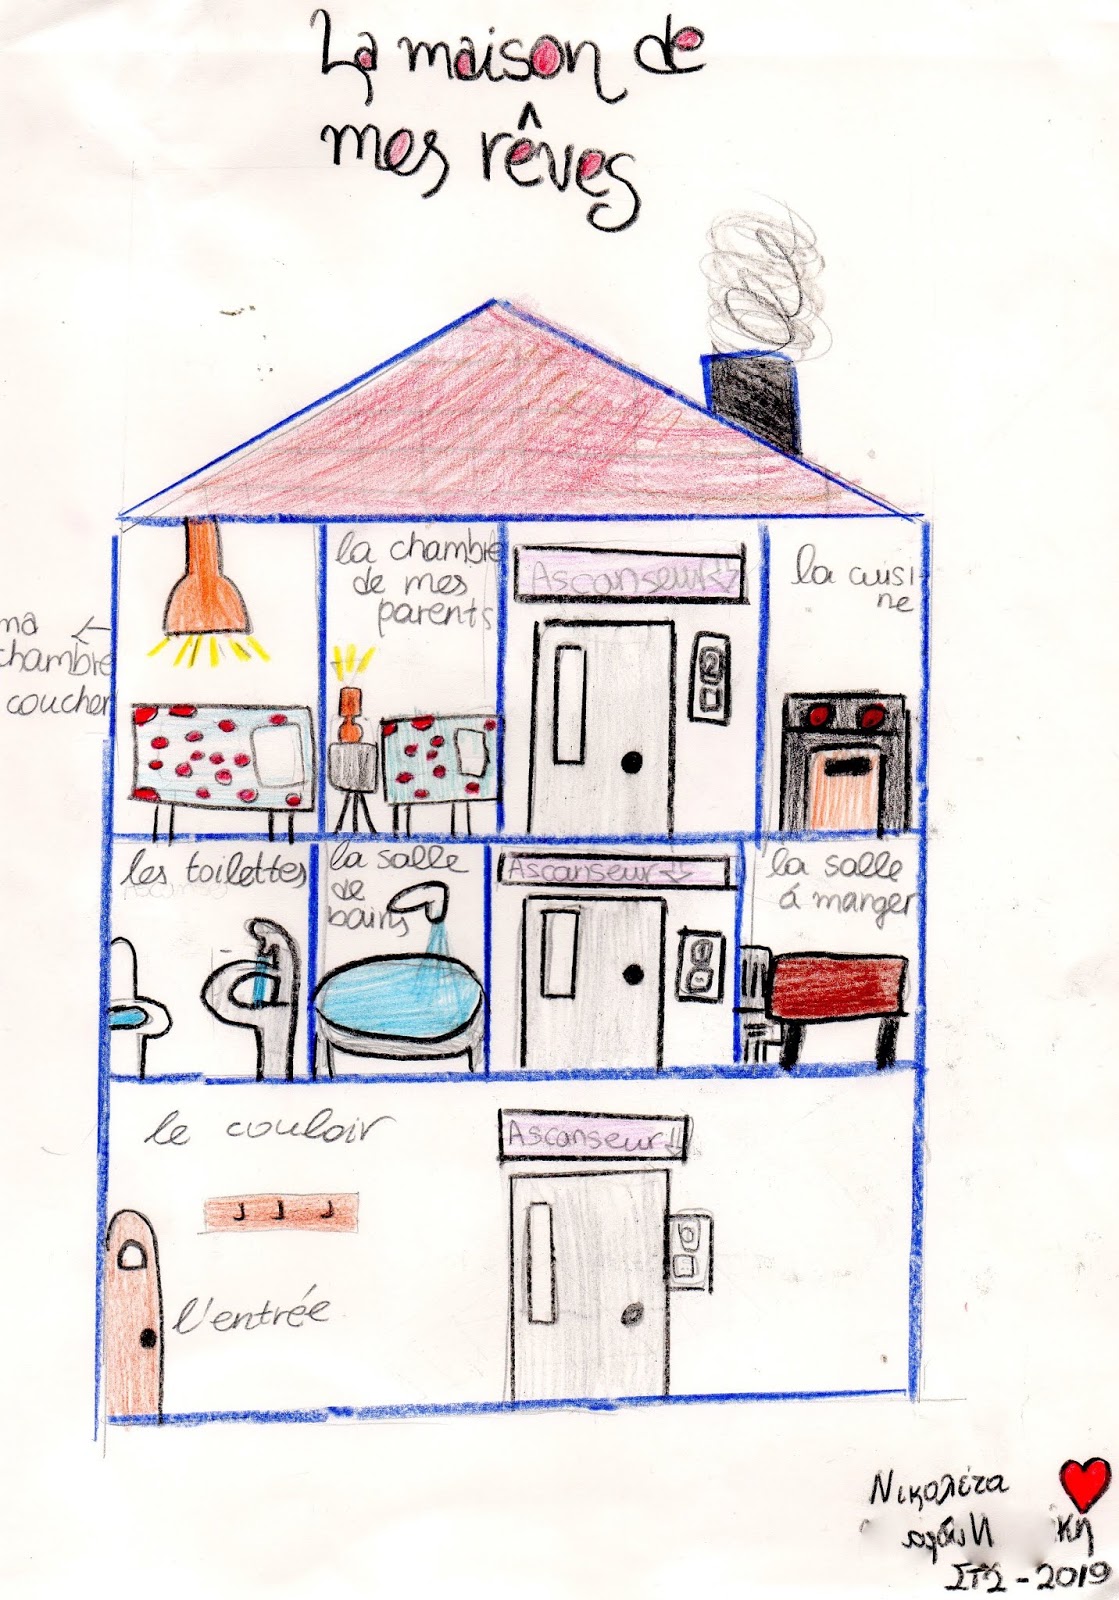 La maison de
mes rêves
ma
chambre
coucher
la chambre
de mes
parents
Ascanseur
la cuisi
ne
les toilettes
la salle
de
bains
Ascanseur
la salle
à manger
le couloir
Ascanseur
l'entrée
Νικολέτα
κη
ΣΤ2-2019